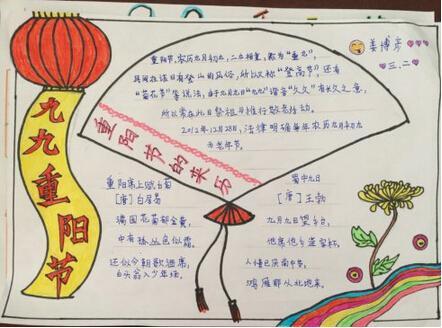 九九重阳节
重阳节的来历
重阳节,农历九月初九,二九相重,称为"重九",
民间在该日有登山的风俗,所以又称"登高节",还有
"菊花节"等说法,由于九月九日"九九"谐音"久久"有长久之意,
所以常在此日祭祖与推行敬老活动。
2012年12月28日,法律明确每年农历九月初九
为老年节。
姜博彦
三、二
重阳席上赋白菊
[唐]白居易
满园花菊郁金黄,
中有孤丛色似霜。
还似今朝歌酒席,
白头翁入少年场。
蜀中九日
[唐]王勃
九月九日望乡台,
他席他乡送客杯。
人情已厌南中苦,
鸿雁那从北地来。